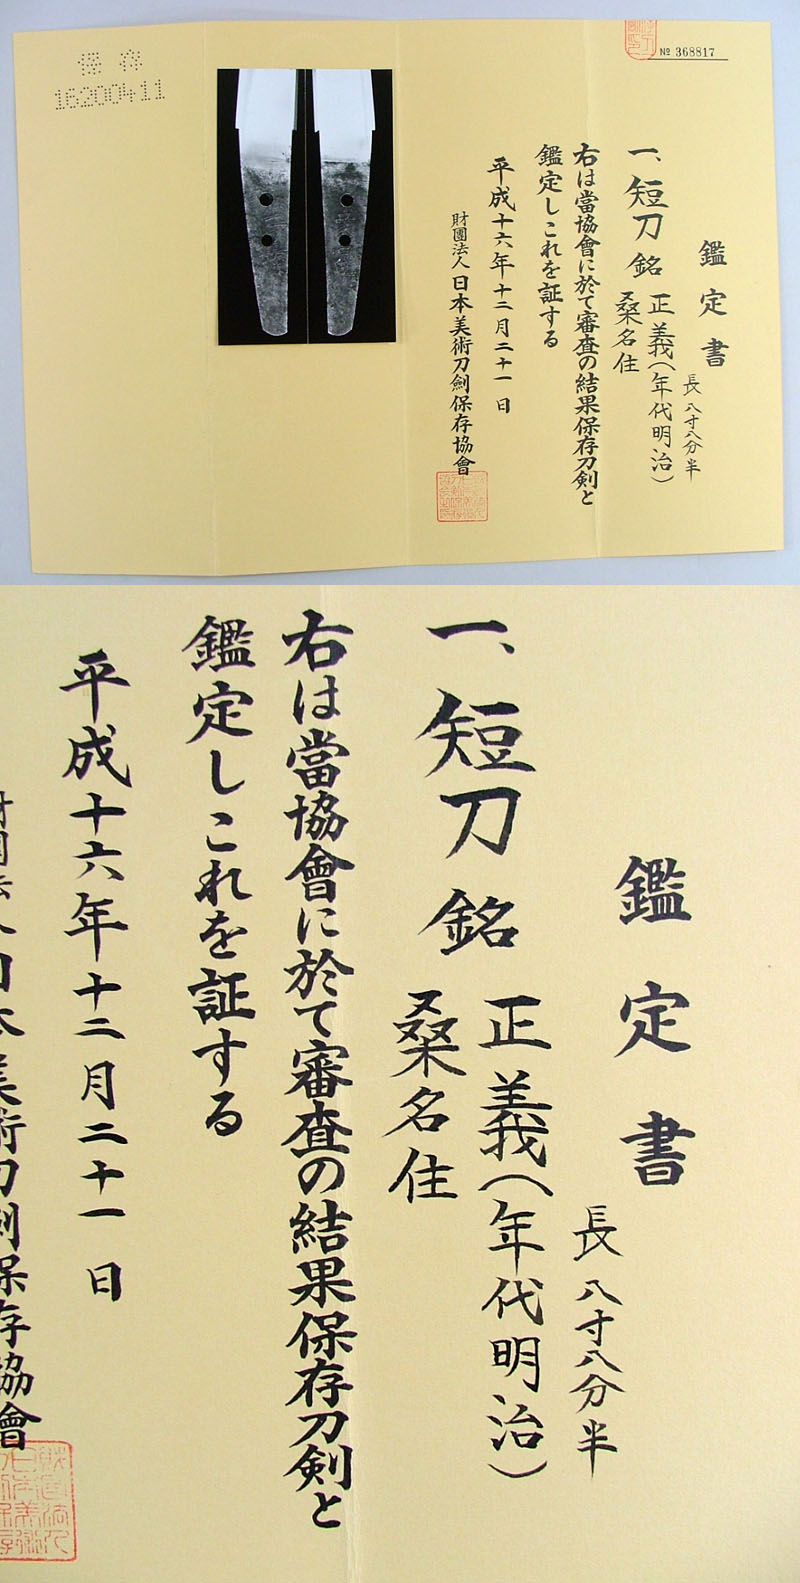 № 368817
鑑定書
長八寸八分半
一、短刀 銘 正義(年代明治)
桑名住
右は當協會に於て審査の結果保存刀剣と
鑑定しこれを証する
平成十六年十二月二十一日
財團法人日本美術刀劍保存協會
保存
16200411
鑑定書
長八寸八分半
一、短刀 銘 正義(年代明治)
桑名住
右は當協會に於て審査の結果保存刀剣と
鑑定しこれを証する
平成十六年十二月二十一日
財團法人日本美術刀劍保存協會